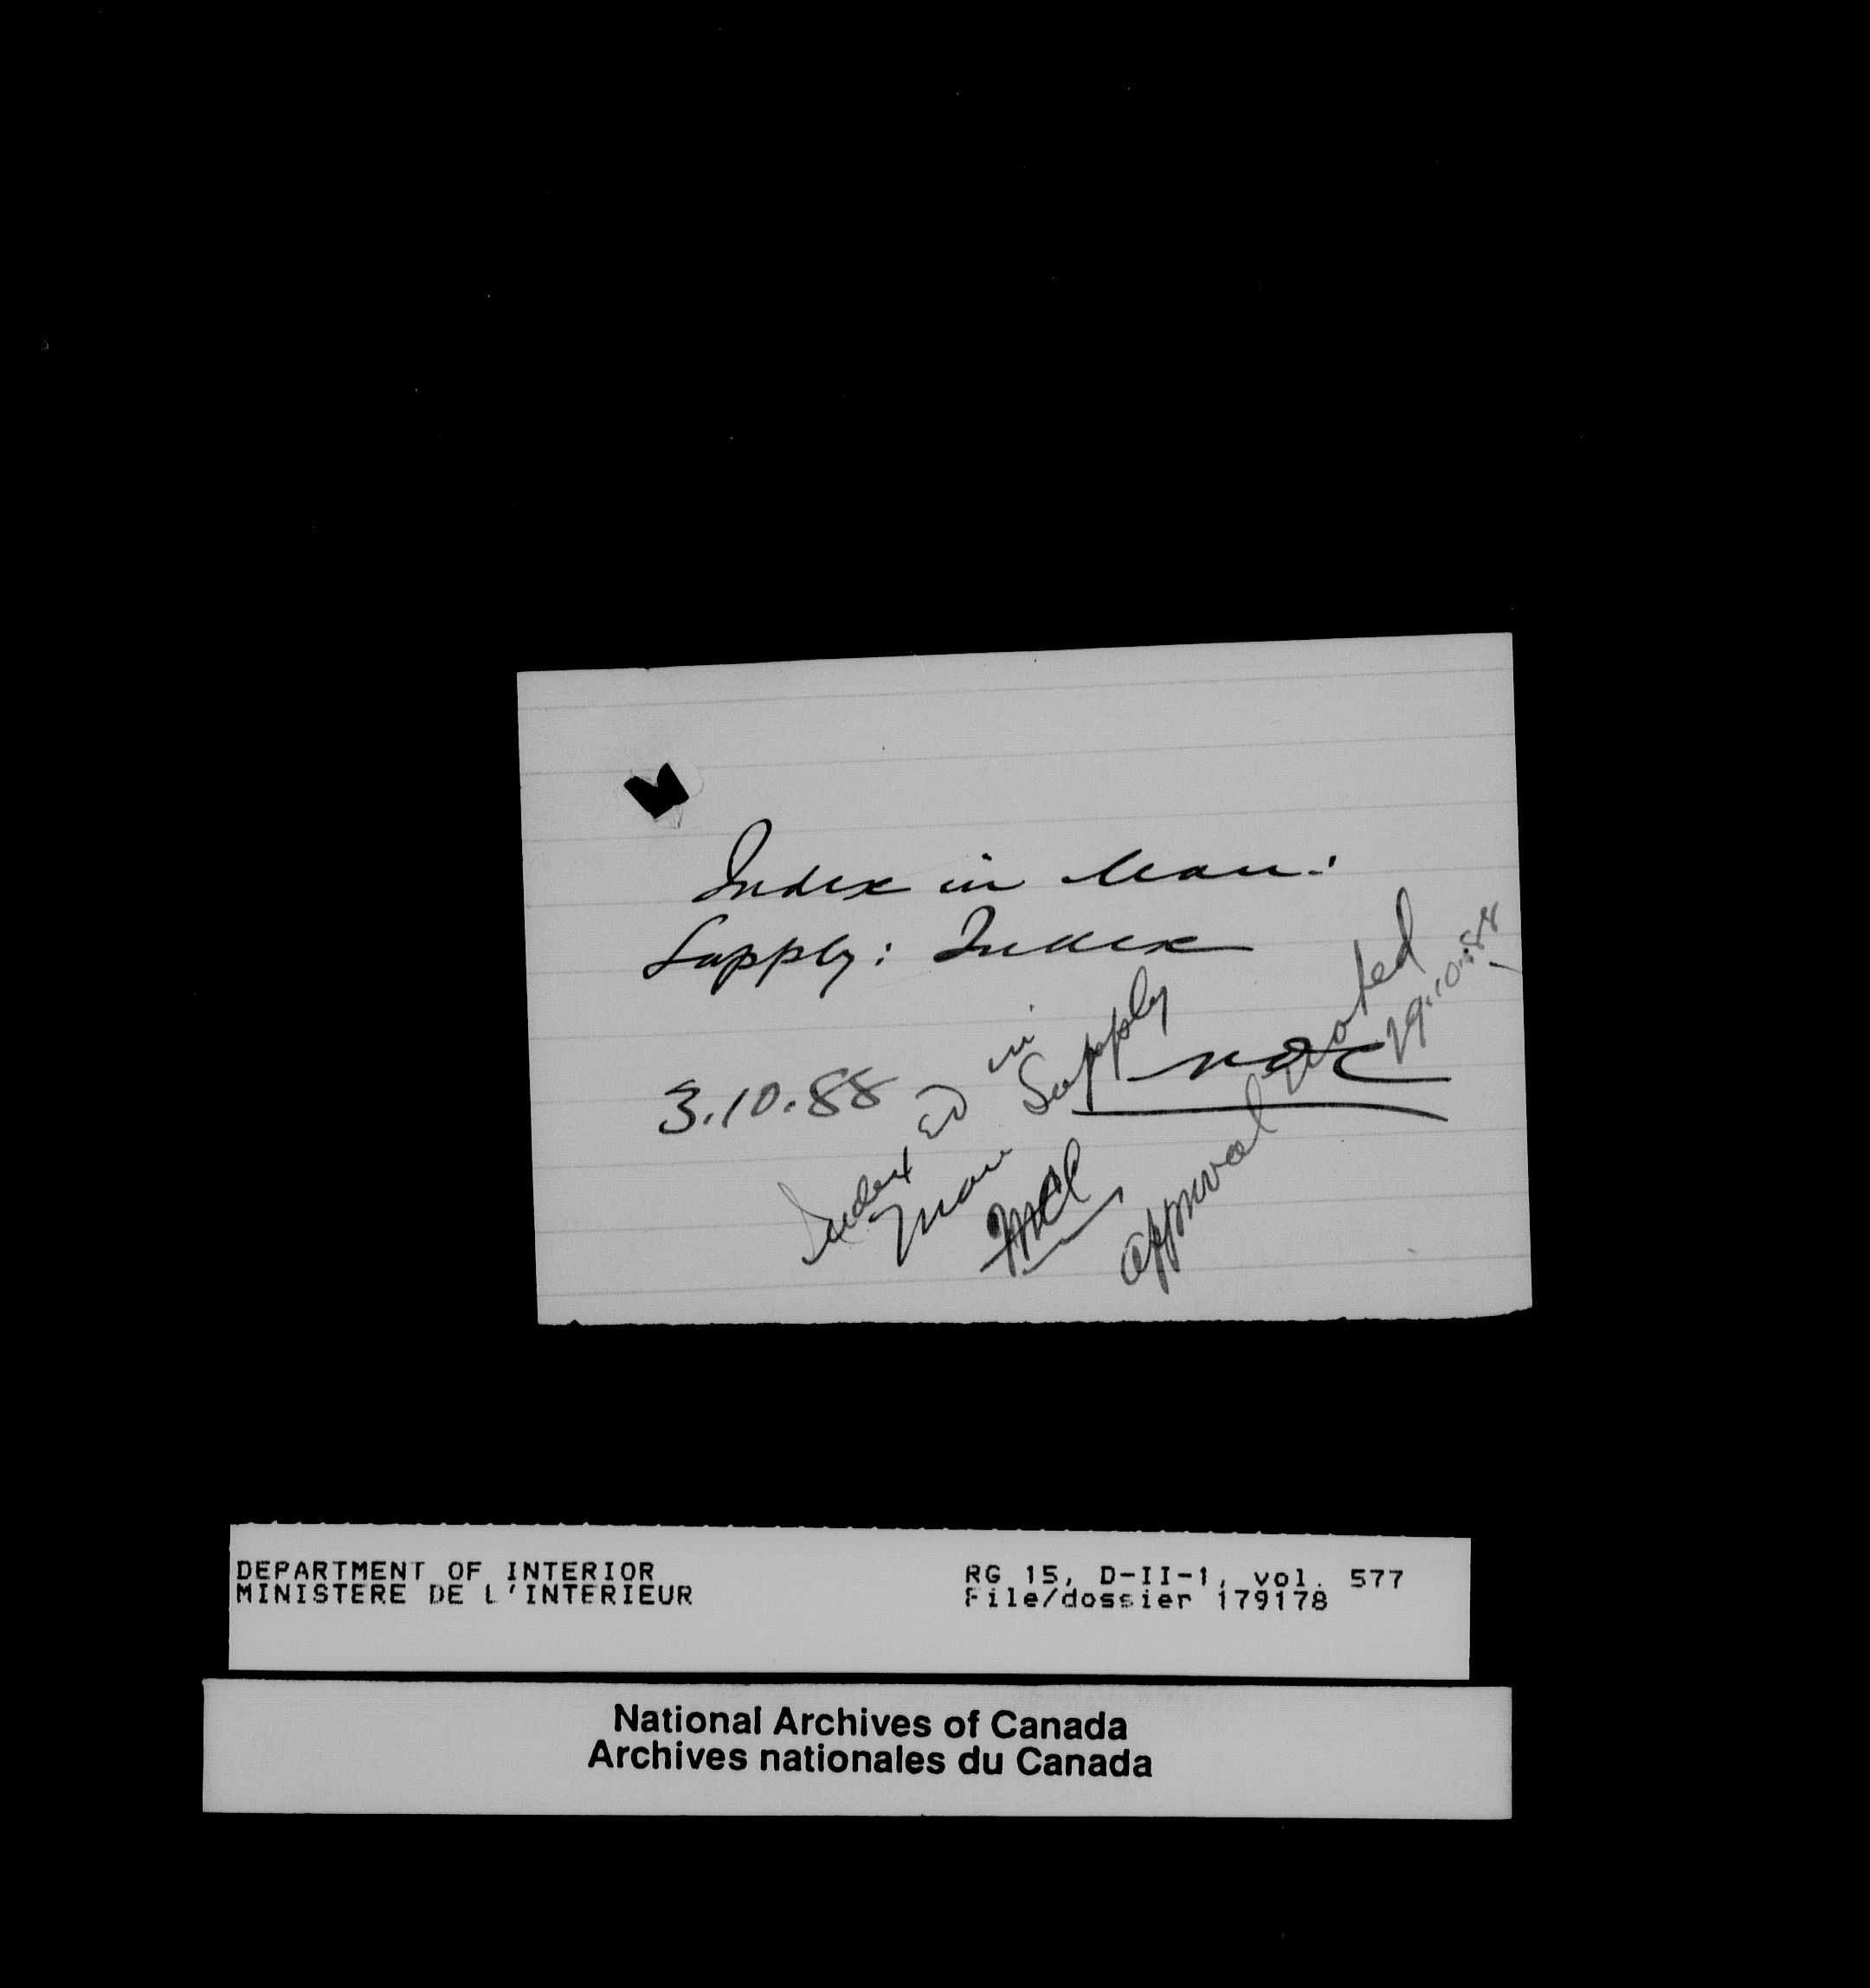 Index in Man:
Supply: Index
3.10.88
Indexed in
Man Supply
Approval noted
29.10.88
DEPARTMENT OF INTERIOR
MINISTERE DE L'INTERIEUR
RG 15, D-II-1, vol. 577
File/dossier 179178
National Archives of Canada
Archives nationales du Canada